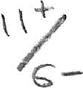 11+
/
6-